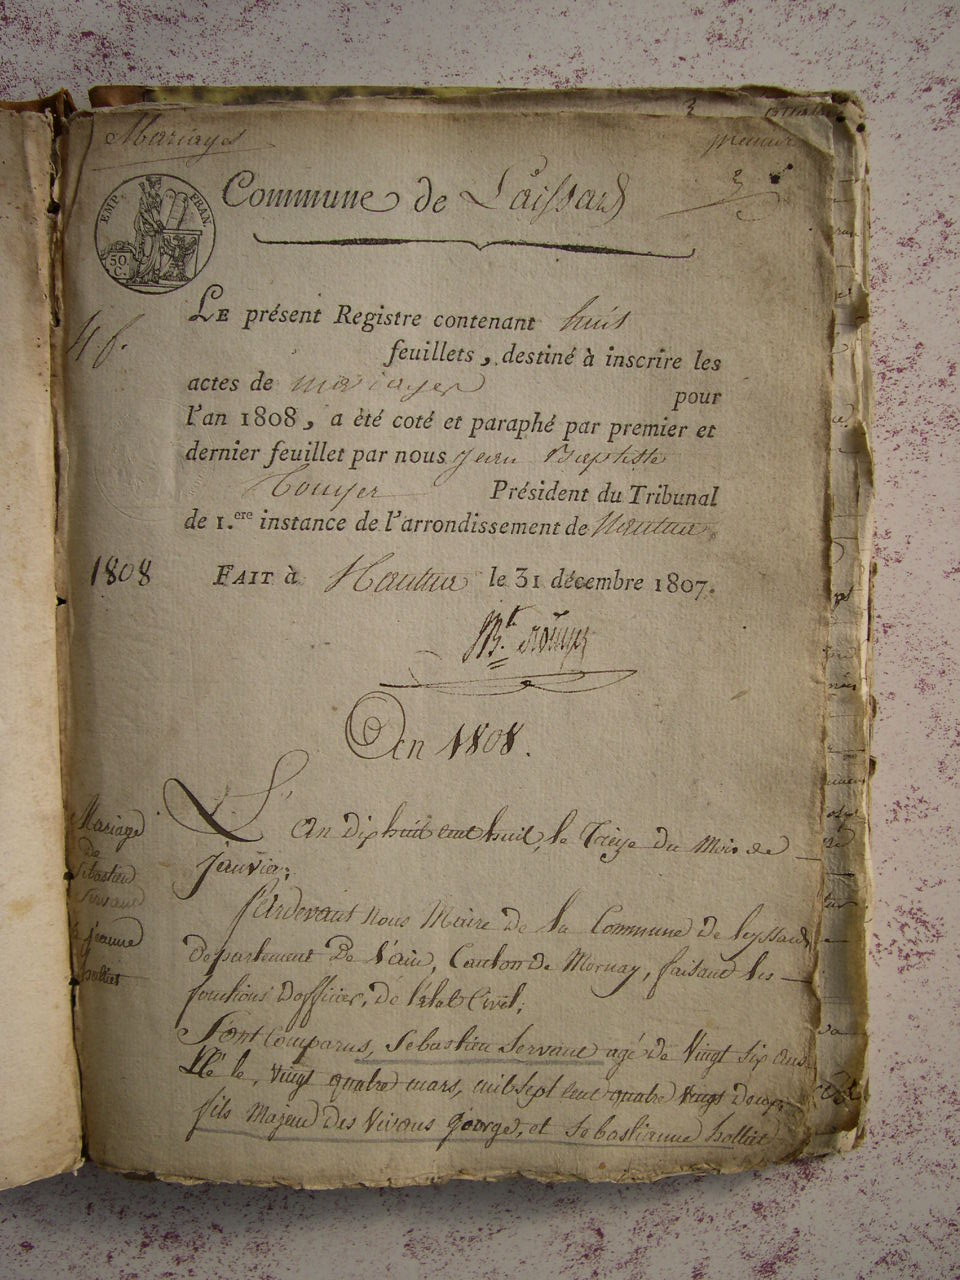 Mariages
3
premier
EMP. FRAN.
50 C.
Commune de Laissard
3
LE présent Registre contenant huit
4 f.
feuillets, destiné à inscrire les
actes de mariages pour
l'an 1808, a été coté et paraphé par premier et
dernier feuillet par nous Jean Baptiste
Rouyer Président du Tribunal
de 1.ere instance de l'arrondissement de Nantua
1808 FAIT à Nantua le 31 décembre 1807.
Bt. Rouyer
En 1808.
L'an dix huit cent huit, le Treize du Mois de
janvier;
Mariage
de
Sebastien
Servant
&
jeanne
holliet
Pardevant nous Maire de la Commune de leyssard
departement De l'ain, Canton de Mornay, faisant les
fonctions d'officier, de l'état Civil;
Sont Comparus, Sebastien Servant agé de Vingt six ans
Né le, vingt quatre mars, mil sept cent quatre vingt
fils Majeur des Vivans george, et Sebastianne holliet